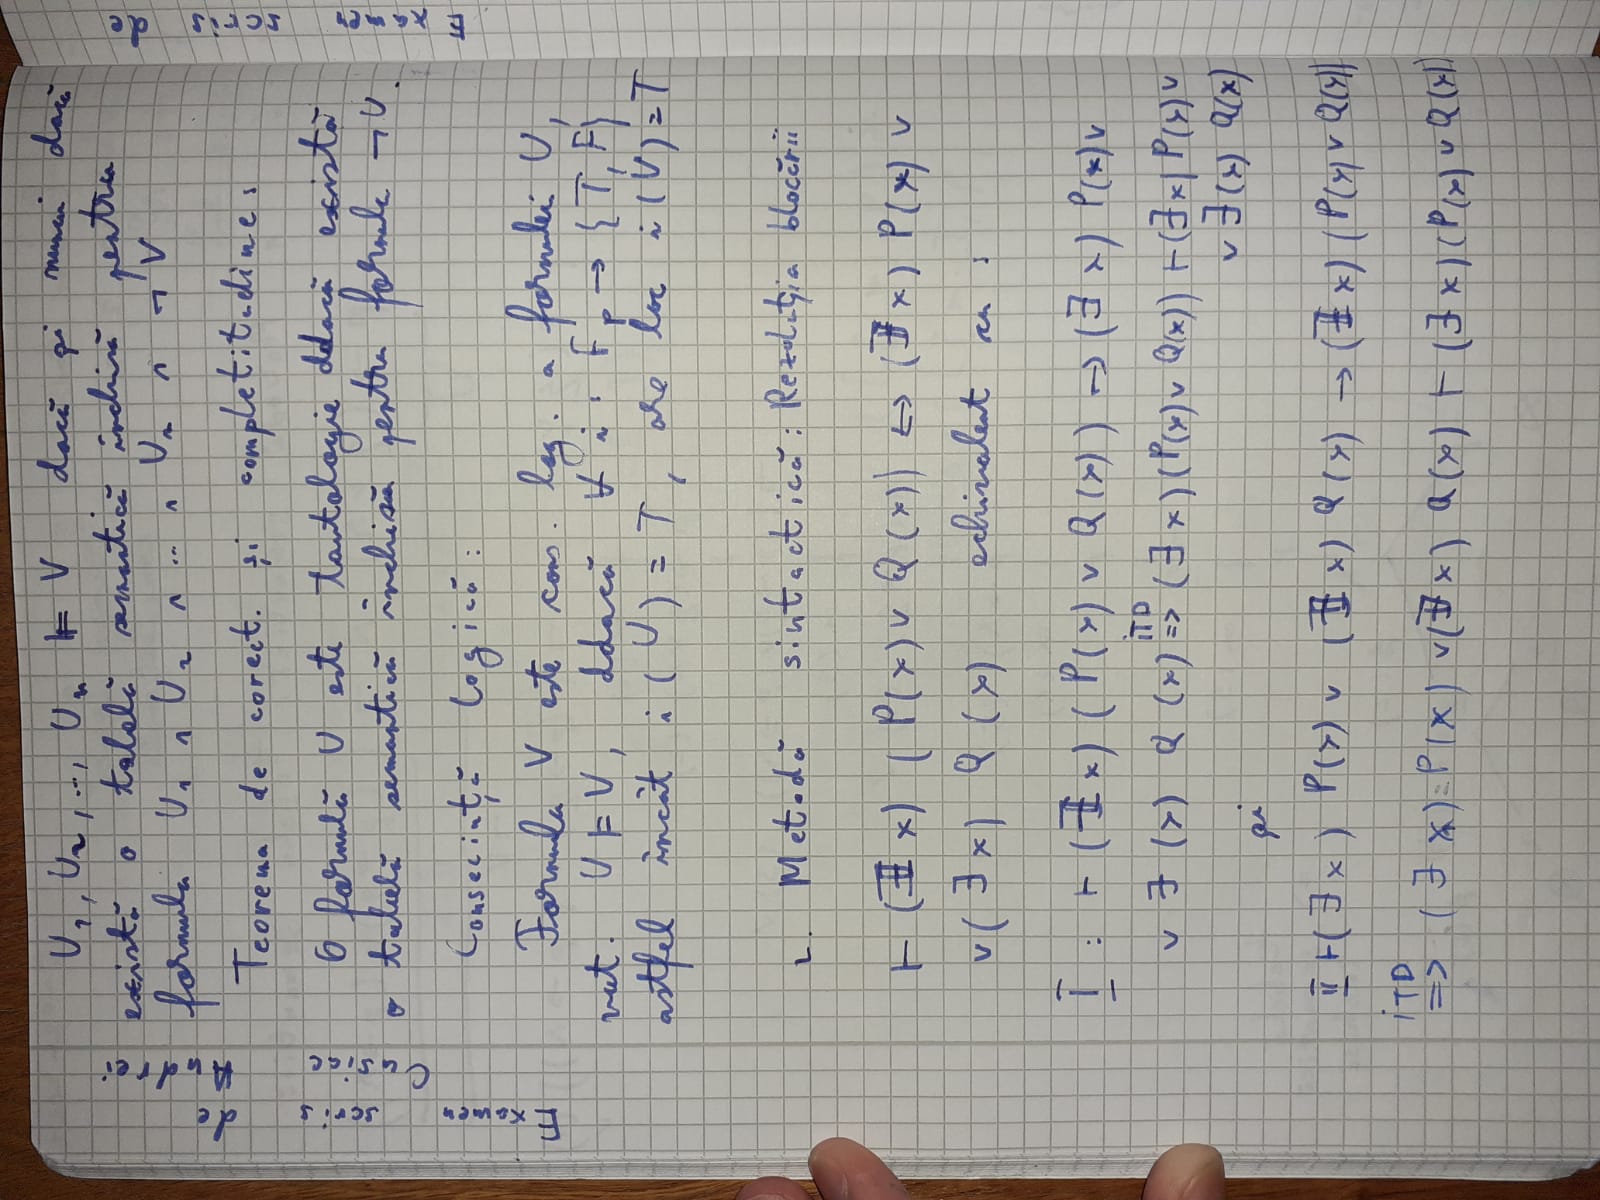 U₁, U₂, ..., Uₙ ⊨ V dacă și numai dacă
există o tabelă semantică închisă pentru
formula U₁ ∧ U₂ ∧ ... ∧ Uₙ ∧ ¬V
Teorema de corect. și completitudine:
O formulă U este tautologie ddacă există
o tabelă semantică închisă pentru formula ¬U.
Conseciață logică:
Formula V este cons. log. a formulei U,
not. U ⊨ V, ddacă ∀ i : Fₚ → {T, F}
astfel încât i(U) = T, are loc i(V) = T
2. Metodă sintactică: Rezoluția blocării
⊢ (∃x) (P(x) ∨ Q(x)) ↔ (∃x) P(x) ∨
∨ (∃x) Q(x) echivalent cu :
I : ⊢ (∃x) (P(x) ∨ Q(x)) → (∃x) P(x) ∨
∨ ∃(x) Q(x) iTD ⇒ (∃x)(P(x) ∨ Q(x)) ⊢ (∃x) P(x) ∨
∨ ∃(x) Q(x)
și
II ⊢ (∃x) P(x) ∨ (∃x) Q(x) → (∃x) (P(x) ∨ Q(x))
iTD
⇒ (∃x) P(x) ∨ (∃x) Q(x) ⊢ (∃x) (P(x) ∨ Q(x))
Examen scris de
Cusiac Andrei
Examen scris de